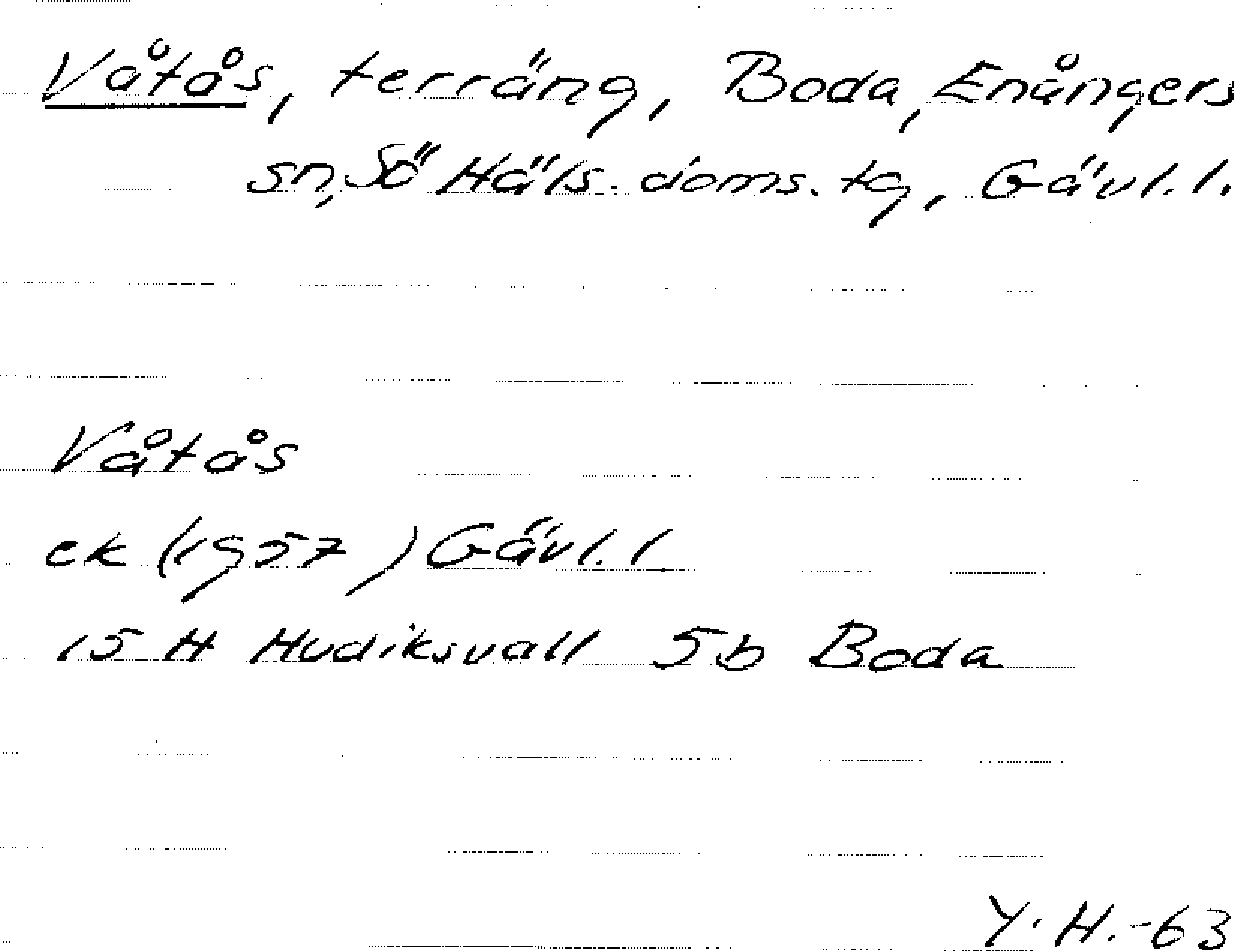 Våtås, terräng, Boda, Enångers
sn, Sö Häls. doms. tg, Gävl. l.
Våtås
ek (1957) Gävl. l
15 H Hudiksvall 5b Boda
Y. H. -63